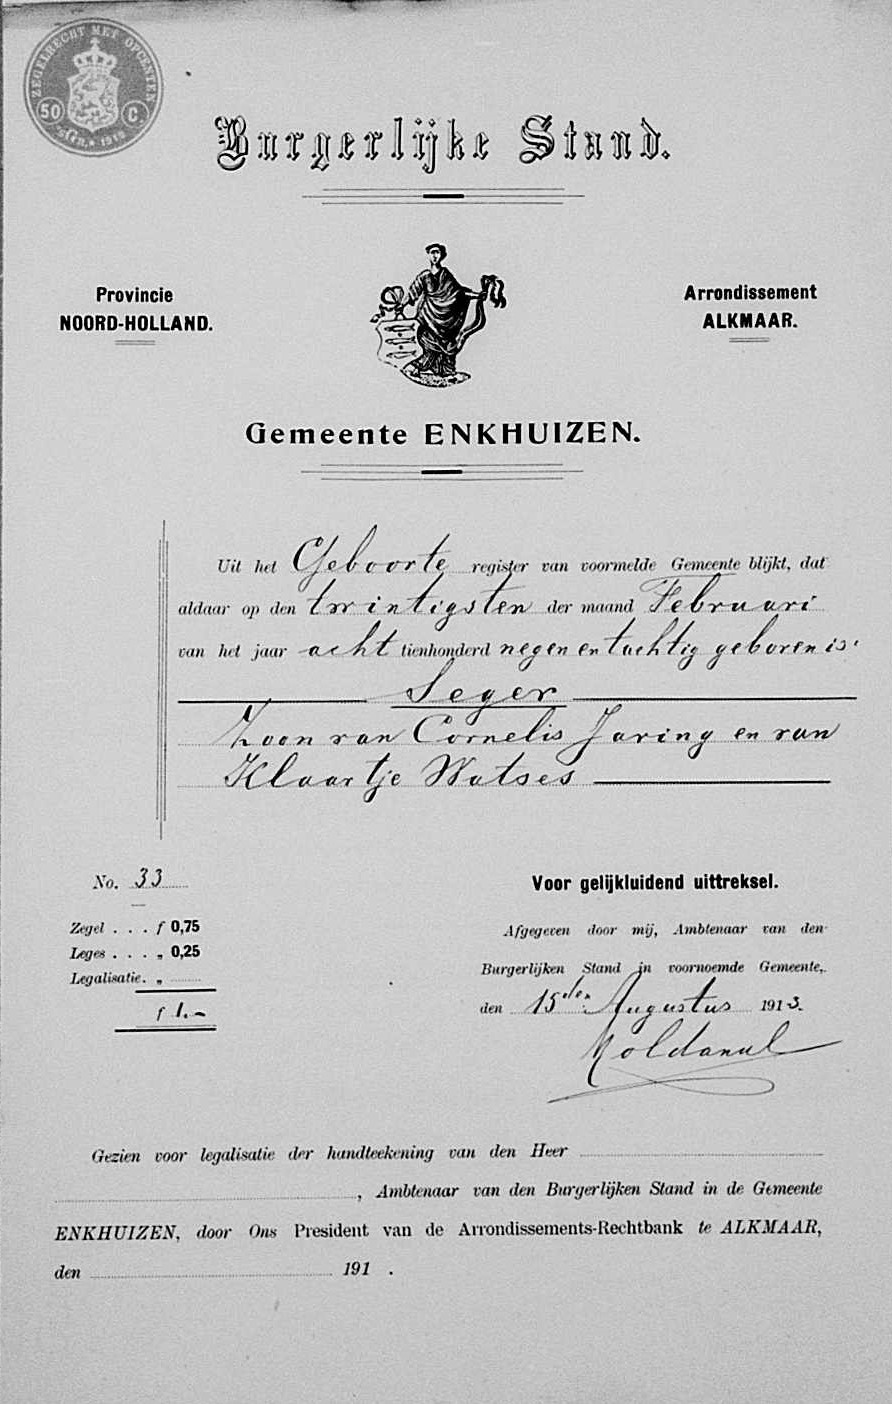 ZEGELRECHT MET OPCENTEN
50 C
Burgerlijke Stand.
Provincie
NOORD-HOLLAND.
Arrondissement
ALKMAAR.
Gemeente ENKHUIZEN.
Uit het Geboorte register van voormelde Gemeente blijkt, dat
aldaar op den twintigsten der maand Februari
van het jaar acht tienhonderd negen en tachtig geboren is:
Seger
Zoon van Cornelis Jaring en van
Klaartje Watses
No. 33
Zegel . . . f 0,75
Leges . . . . „ 0,25
Legalisatie. „
f 1.-
Voor gelijkluidend uittreksel.
Afgegeven door mij, Ambtenaar van den
Burgerlijken Stand in voornoemde Gemeente,
den 15den Augustus 1913.
Gezien voor legalisatie der handteekening van den Heer
, Ambtenaar van den Burgerlijken Stand in de Gemeente
ENKHUIZEN, door Ons President van de Arrondissements-Rechtbank te ALKMAAR,
den 191 .